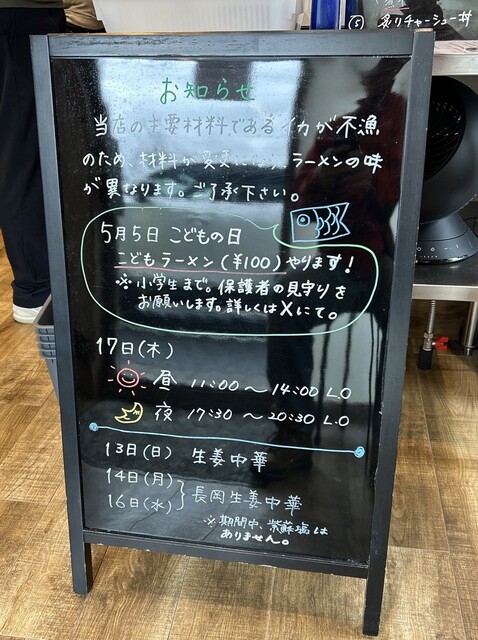 ⑤ 炙りチャーシュー丼
お知らせ
当店の主要材料であるイカが不漁
のため、材料が変更になり、ラーメンの味
が異なります。ご了承下さい。
5月5日 こどもの日
こどもラーメン(¥100)やります!
※小学生まで。保護者の見守りを
お願いします。詳しくはXにて。
17日(木)
昼 11:00〜14:00 L.O
夜 17:30〜20:30 L.O
13日(日) 生姜中華
14日(月)
16日(水) }長岡生姜中華
※期間中、紫蘇塩は
ありません。